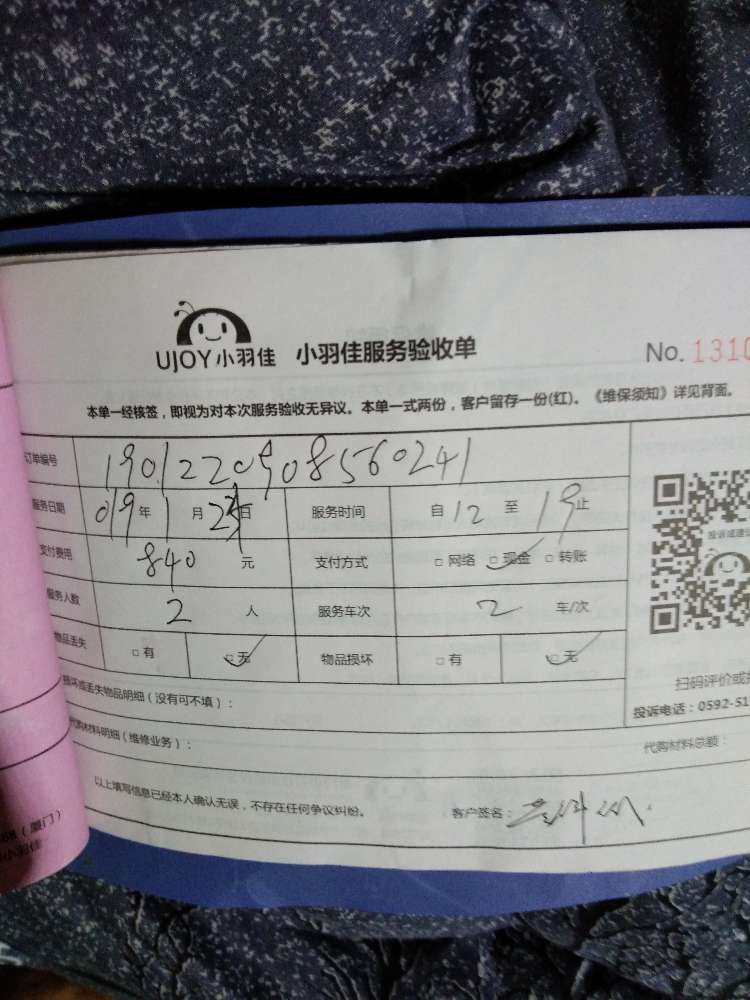 UJOY小羽佳 小羽佳服务验收单 No. 1310
本单一经核签，即视为对本次服务验收无异议。本单一式两份，客户留存一份(红)。《维保须知》详见背面。
订单编号 1901220908560241
服务日期 019年1月23日 服务时间 自12至19止
支付费用 840元 支付方式 □网络 □现金 □转账
服务人数 2人 服务车次 2车/次
物品丢失 □有 □无 物品损坏 □有 □无
损坏或丢失物品明细（没有可不填）：
代购材料明细（维修业务）： 代购材料总额：
以上填写信息已经本人确认无误，不存在任何争议纠纷。 客户签名：
投诉或建议
扫码评价或
投诉电话：0592-51
（厦门）
小羽佳